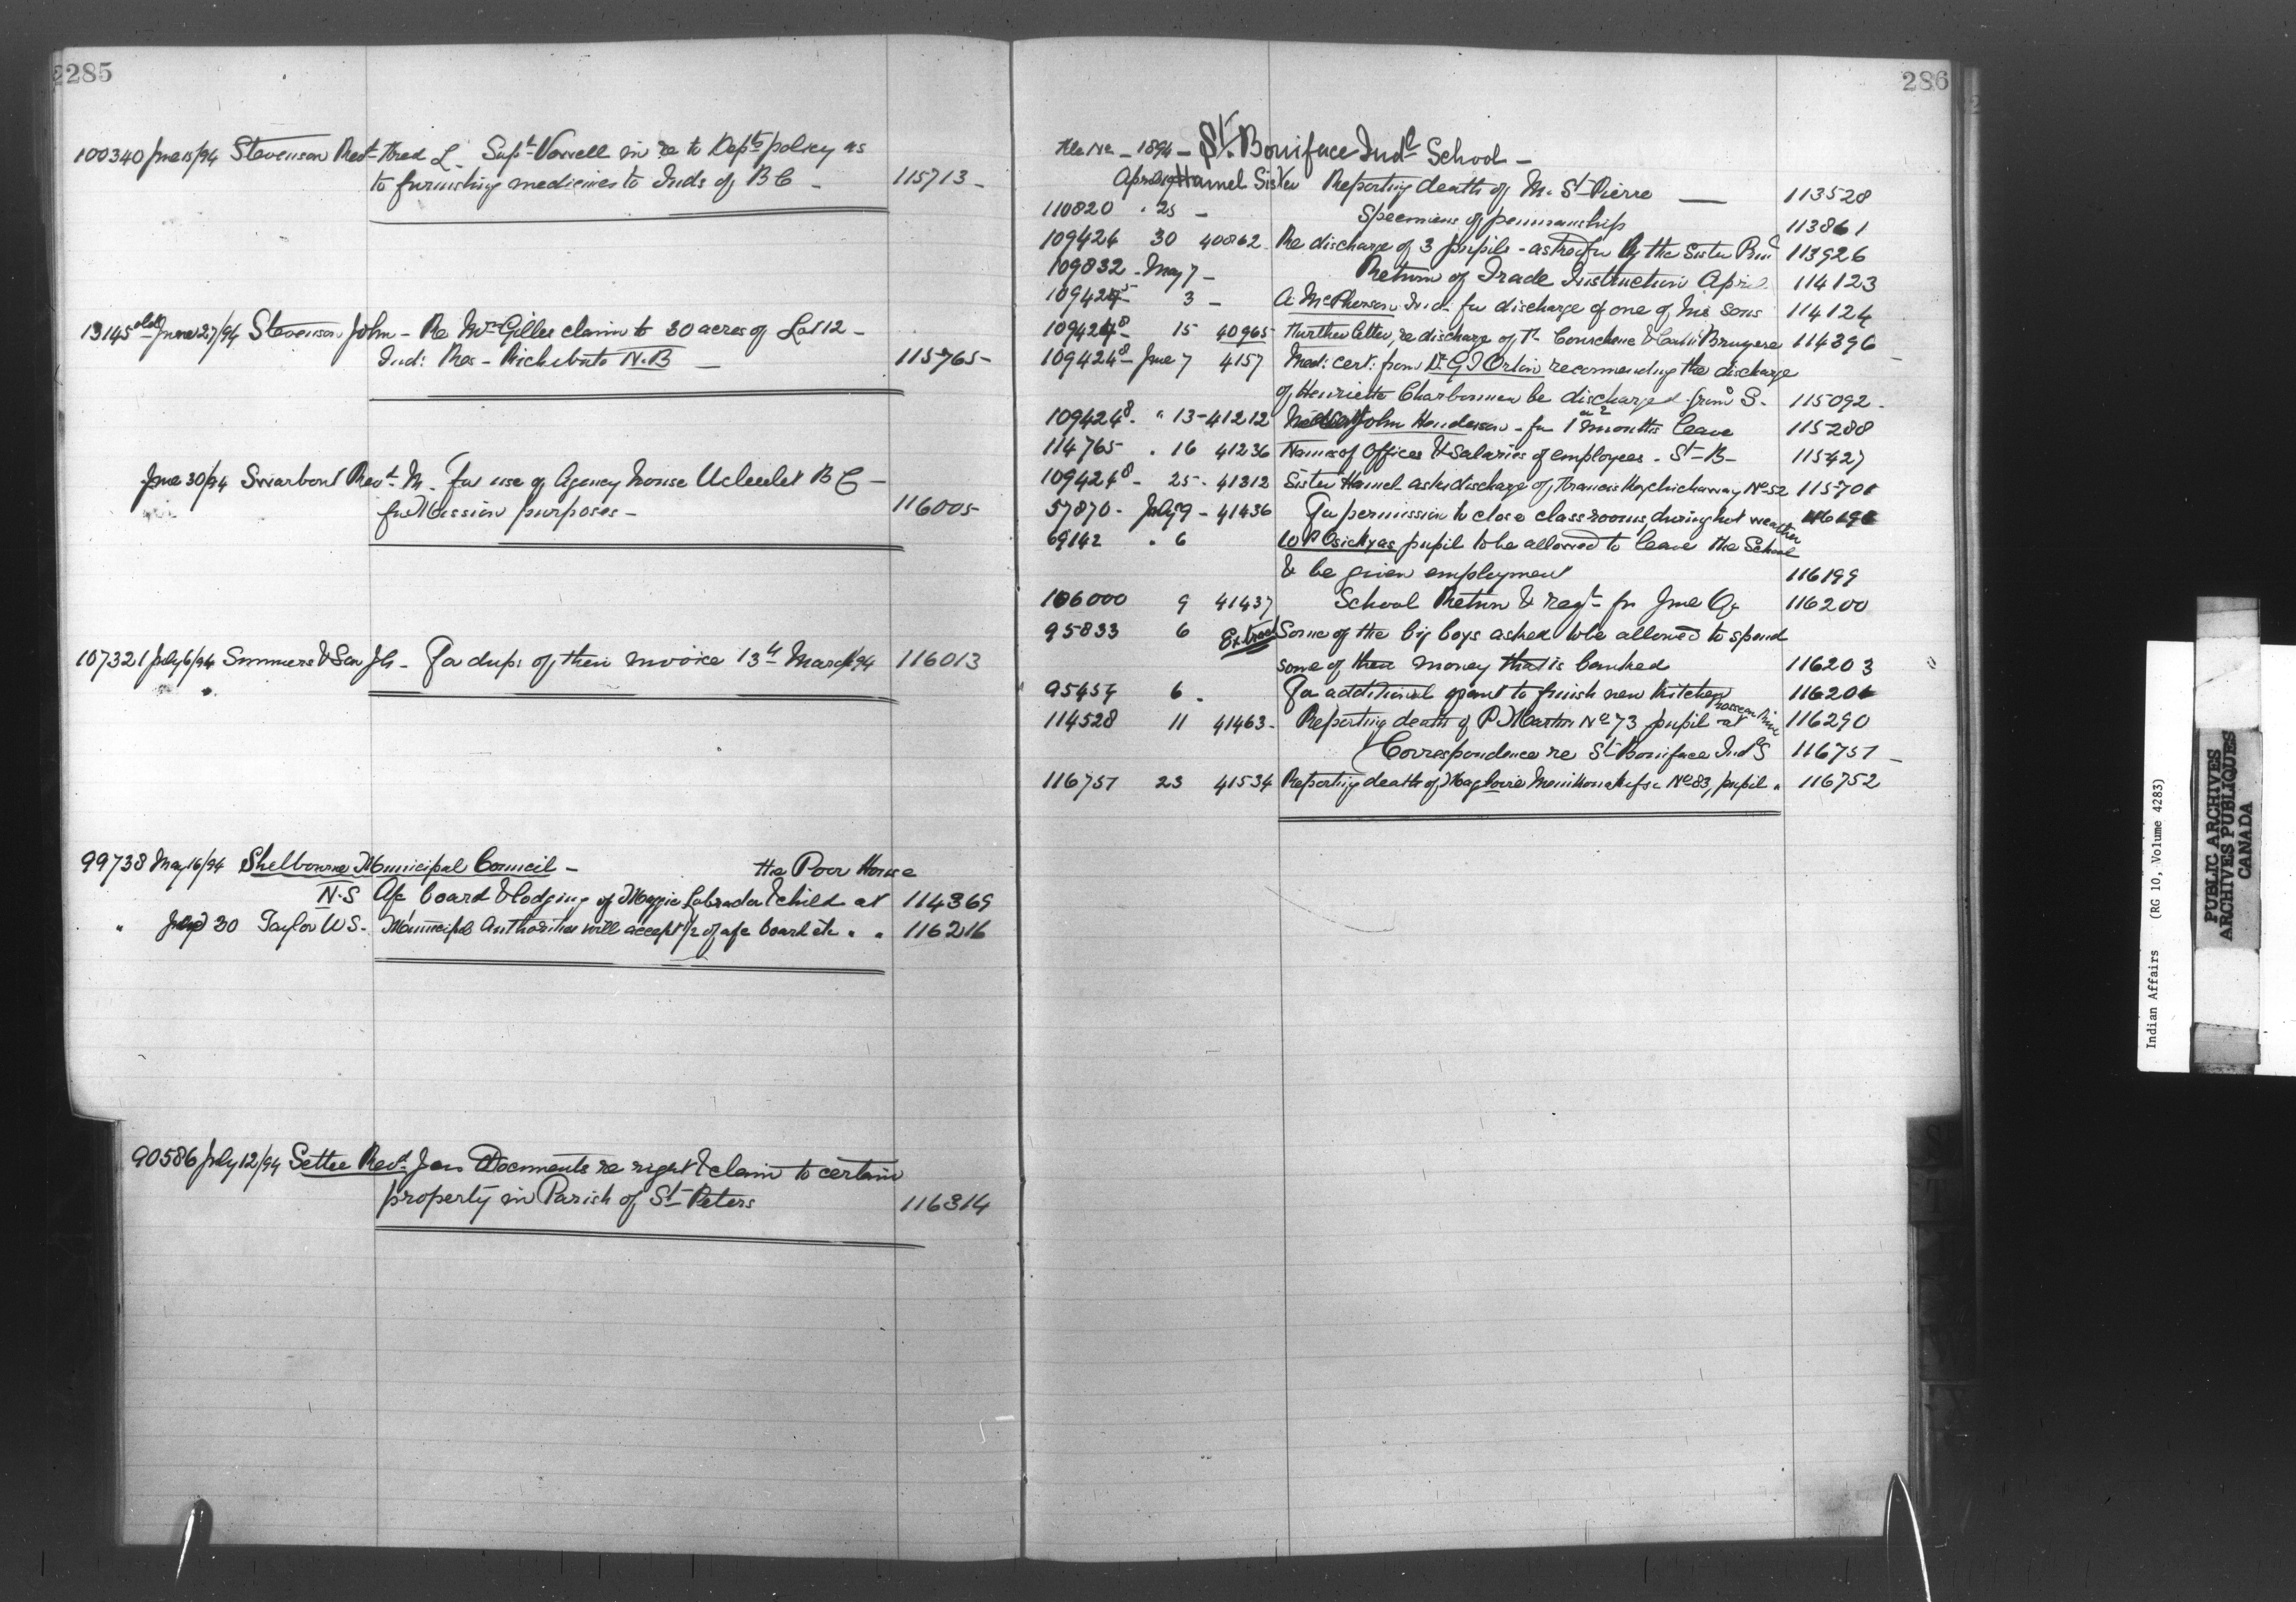 2285
100340 June 15/94 Stevenson Revd Fred L. Supt Vowell in re to Depts policy as
to furnishing medicines to Inds of B C - 115713 -
13145 old June 27/94 Stevenson John - Re Mr Gilles claim to 30 acres of Lot 12 -
Ind: Res - Richibucto N.B - 115765 -
June 30/94 Swarbout Revd M. For use of Agency House Ucluelet B C -
for Mission purposes - 116005
107321 July 6/94 Summers & Son - For dups of their invoice 13th March/94 116013
99738 May 16/94 Shelbourne Municipal Council - the Poor House
N.S a/c board & lodging of Maggie Labrador & child at 114369
" July 30 Taylor W S. Municipal Authorities will accept 1/2 of a/c board etc " " 116216
90586 July 12/94 Settee Revd Jas Documents re right & claim to certain
property in Parish of St Peters 116314
286
File No - 1894 - St. Boniface Indl School -
April Hamel Sister Reporting death of M. St Pierre 113528
110820 " 25 - Specimens of penmanship 113861
109424 30 40862 Re discharge of 3 pupils - asked for by the Sister 113926
109832 - May 7 - Return of Trade Instruction April 114123
3 - A. McPherson Ind. for discharge of one of his sons 114124
109424 8 15 40965 Further letter, re discharge of Courchene & Bruyere 114396
109424 8 - June 7 4157 Med: cert: from Dr G T Orton recommending the discharge
of Henriette Charbonneau be discharged from S. 115092 -
109424 8. " 13 - 41212 John Henderson - for months leave 115288
114765 " 16 41236 Names of Offices & salaries of employees - St - B - 115427
109424 8 - 25 - 41312 Sister Hamel asks discharge of Francis No 52
57870 - July 9 - 41436 For permission to close class rooms, during hot weather
69142 " 6 pupil to be allowed to leave the School
& be given employment 116199
106000 9 41437 School Return & reqn for June Qr 116200
95833 6 Extract Some of the big boys asked to be allowed to spend
some of their money that is banked 116203
95454 6 - For additional grant to finish new Kitchen
114528 11 41463 - Reporting death of P Martin No 73 pupil at 116290
Correspondence re St Boniface Indl S 116751 -
116751 23 41534 Reporting death of No 83, pupil " 116752
Indian Affairs (RG 10, Volume 4283)
PUBLIC ARCHIVES
ARCHIVES PUBLIQUES
CANADA